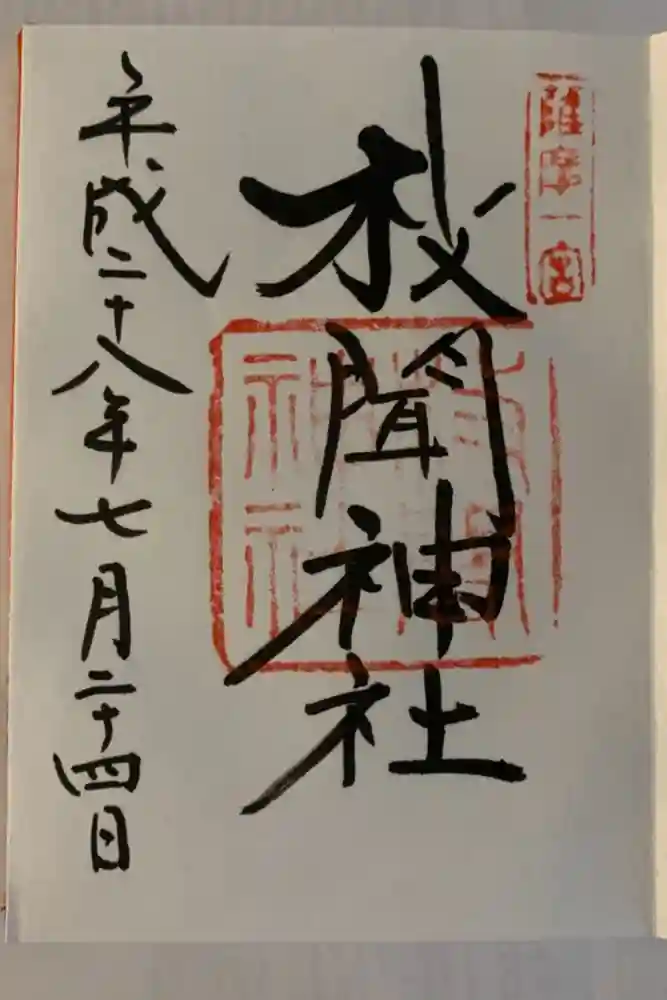 薩摩一宮
枚聞神社
平成二十八年七月二十四日